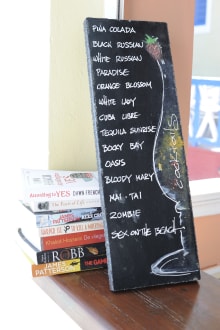 PIÑA COLADA
BLACK RUSSIAN
WHITE RUSSIAN
PARADISE
ORANGE BLOSSOM
WHITE LADY
CUBA LIBRE
TEQUILA SUNRISE
BOOBY BAY
OASIS
BLOODY MARY
MAI-TAI
ZOMBIE
SEX ON THE BEACH
COCKTAILS
According to YES
DAWN FRENCH
Khaled Hosseini
ROBB
JAMES
PATTERSON
THE